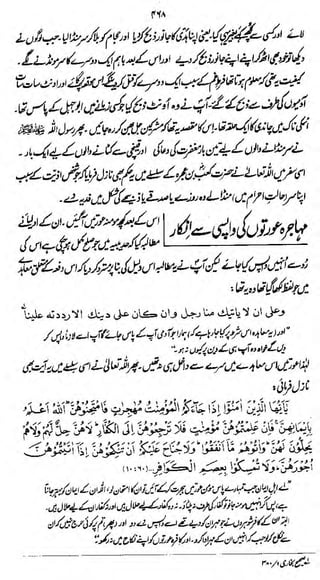 ۴۶۸
لائے اور کسی سے کچھ کہے بغیر یہی کیا۔ یعنی اپنا ہدی کا جانور ذبح کر دیا اور حجام کو بلا کر سر منڈا لیا۔ جب لوگوں نے
دیکھا تو خود بھی اٹھ کر اپنے اپنے جانور ذبح کر دیے اور اس کے بعد باہم ایک دوسرے کا سر مونڈنے لگے۔
کیفیت یہ تھی کہ معلوم ہوتا تھا فرطِ غم کے سبب ایک دوسرے کو قتل کر دیں گے۔ اس موقعہ پر گائے اور اونٹ سات سات
آدمیوں کی طرف سے ذبح کئے گئے۔ آپ نے وہ اونٹ ذبح کیا جو کسی زمانے میں ابو جہل کے پاس تھا۔
اسکی ناک میں چاندی کا ایک حلقہ تھا۔ اس کا مقصد یہ تھا کہ مشرکین جل بھن کر رہ جائیں۔ پھر رسول اللہ ﷺ
نے سر منڈانے والوں کے لیے تین بار مغفرت کی دعا کی اور قینچی سے کٹانے والوں کے لیے ایک بار۔
اسی سفر میں اللہ تعالیٰ نے حضرت کعب بن عجرہ کے سلسلے میں یہ حکم بھی نازل فرمایا کہ جو شخص اذیت کے سبب
اپنا سر حالتِ احرام میں منڈا لے وہ روزے یا صدقے یا ذبیحے کی شکل میں فدیہ دے۔
مہاجرہ عورتوں کی واپسی سے انکار
اس کے بعد کچھ مومنہ عورتیں آ گئیں۔ ان کے اولیاء نے
مطالبہ کیا کہ حدیبیہ میں جو صلح مکمل ہو چکی ہے اس کی
رُو سے انہیں واپس کیا جائے لیکن آپ نے یہ مطالبہ اس دلیل کی بنا پر مسترد کر دیا کہ اس دفعہ کے متعلق معاہدے
میں جو لفظ لکھا گیا تھا وہ یہ تھا:
وعلی ان لا یاتیک منا رجل وان کان علی دینک الا رددتہ علینا
"اور (یہ معاہدہ اس شرط پر کیا جا رہا ہے کہ) ہمارا جو آدمی آپ کے پاس جائے گا آپ اسے لازماً واپس کر
دیں گے خواہ وہ آپ ہی کے دین پر کیوں نہ ہو۔"
لہٰذا عورتیں اس معاہدے میں سرے سے داخل ہی نہ تھیں۔ پھر اللہ تعالیٰ نے اسی سلسلے میں یہ آیت بھی
نازل فرمائی:
يٰٓاَيُّهَا الَّذِيْنَ اٰمَنُوْٓا اِذَا جَآءَكُمُ الْمُؤْمِنٰتُ مُهٰجِرٰتٍ فَامْتَحِنُوْهُنَّ ۭ اَللّٰهُ اَعْلَمُ
بِاِيْمَانِهِنَّ ۚ فَاِنْ عَلِمْتُمُوْهُنَّ مُؤْمِنٰتٍ فَلَا تَرْجِعُوْهُنَّ اِلَى الْكُفَّارِ ۭ لَا هُنَّ حِلٌّ لَّهُمْ وَلَا هُمْ
يَحِلُّوْنَ لَهُنَّ ۭ وَاٰتُوْهُمْ مَّآ اَنْفَقُوْا ۭ وَلَا جُنَاحَ عَلَيْكُمْ اَنْ تَنْكِحُوْهُنَّ اِذَآ اٰتَيْتُمُوْهُنَّ
اُجُوْرَهُنَّ ۭ وَلَا تُمْسِكُوْا بِعِصَمِ الْكَوَافِرِ (۱۰:۶۰)
"اے اہلِ ایمان جب تمہارے پاس مومن عورتیں ہجرت کر کے آئیں تو ان کا امتحان لو، اللہ ان کے ایمان کو بہتر جانتا ہے
پس اگر انہیں مومنہ جانو تو کفار کی طرف نہ پلٹاؤ۔ نہ وہ کفار کے لیے حلال ہیں اور نہ کفار ان کے لیے حلال ہیں۔
البتہ ان کے کافر شوہروں نے جو مہر ان کو دیے تھے اسے واپس دے دو اور (پھر) تم پر کوئی حرج نہیں کہ ان
سے نکاح کر لو جب کہ انہیں ان کے مہر ادا کرو۔ اور کافرہ عورتوں کو اپنے نکاح میں نہ رکھو۔"
لہ صحیح بخاری ۱/۳۸۰